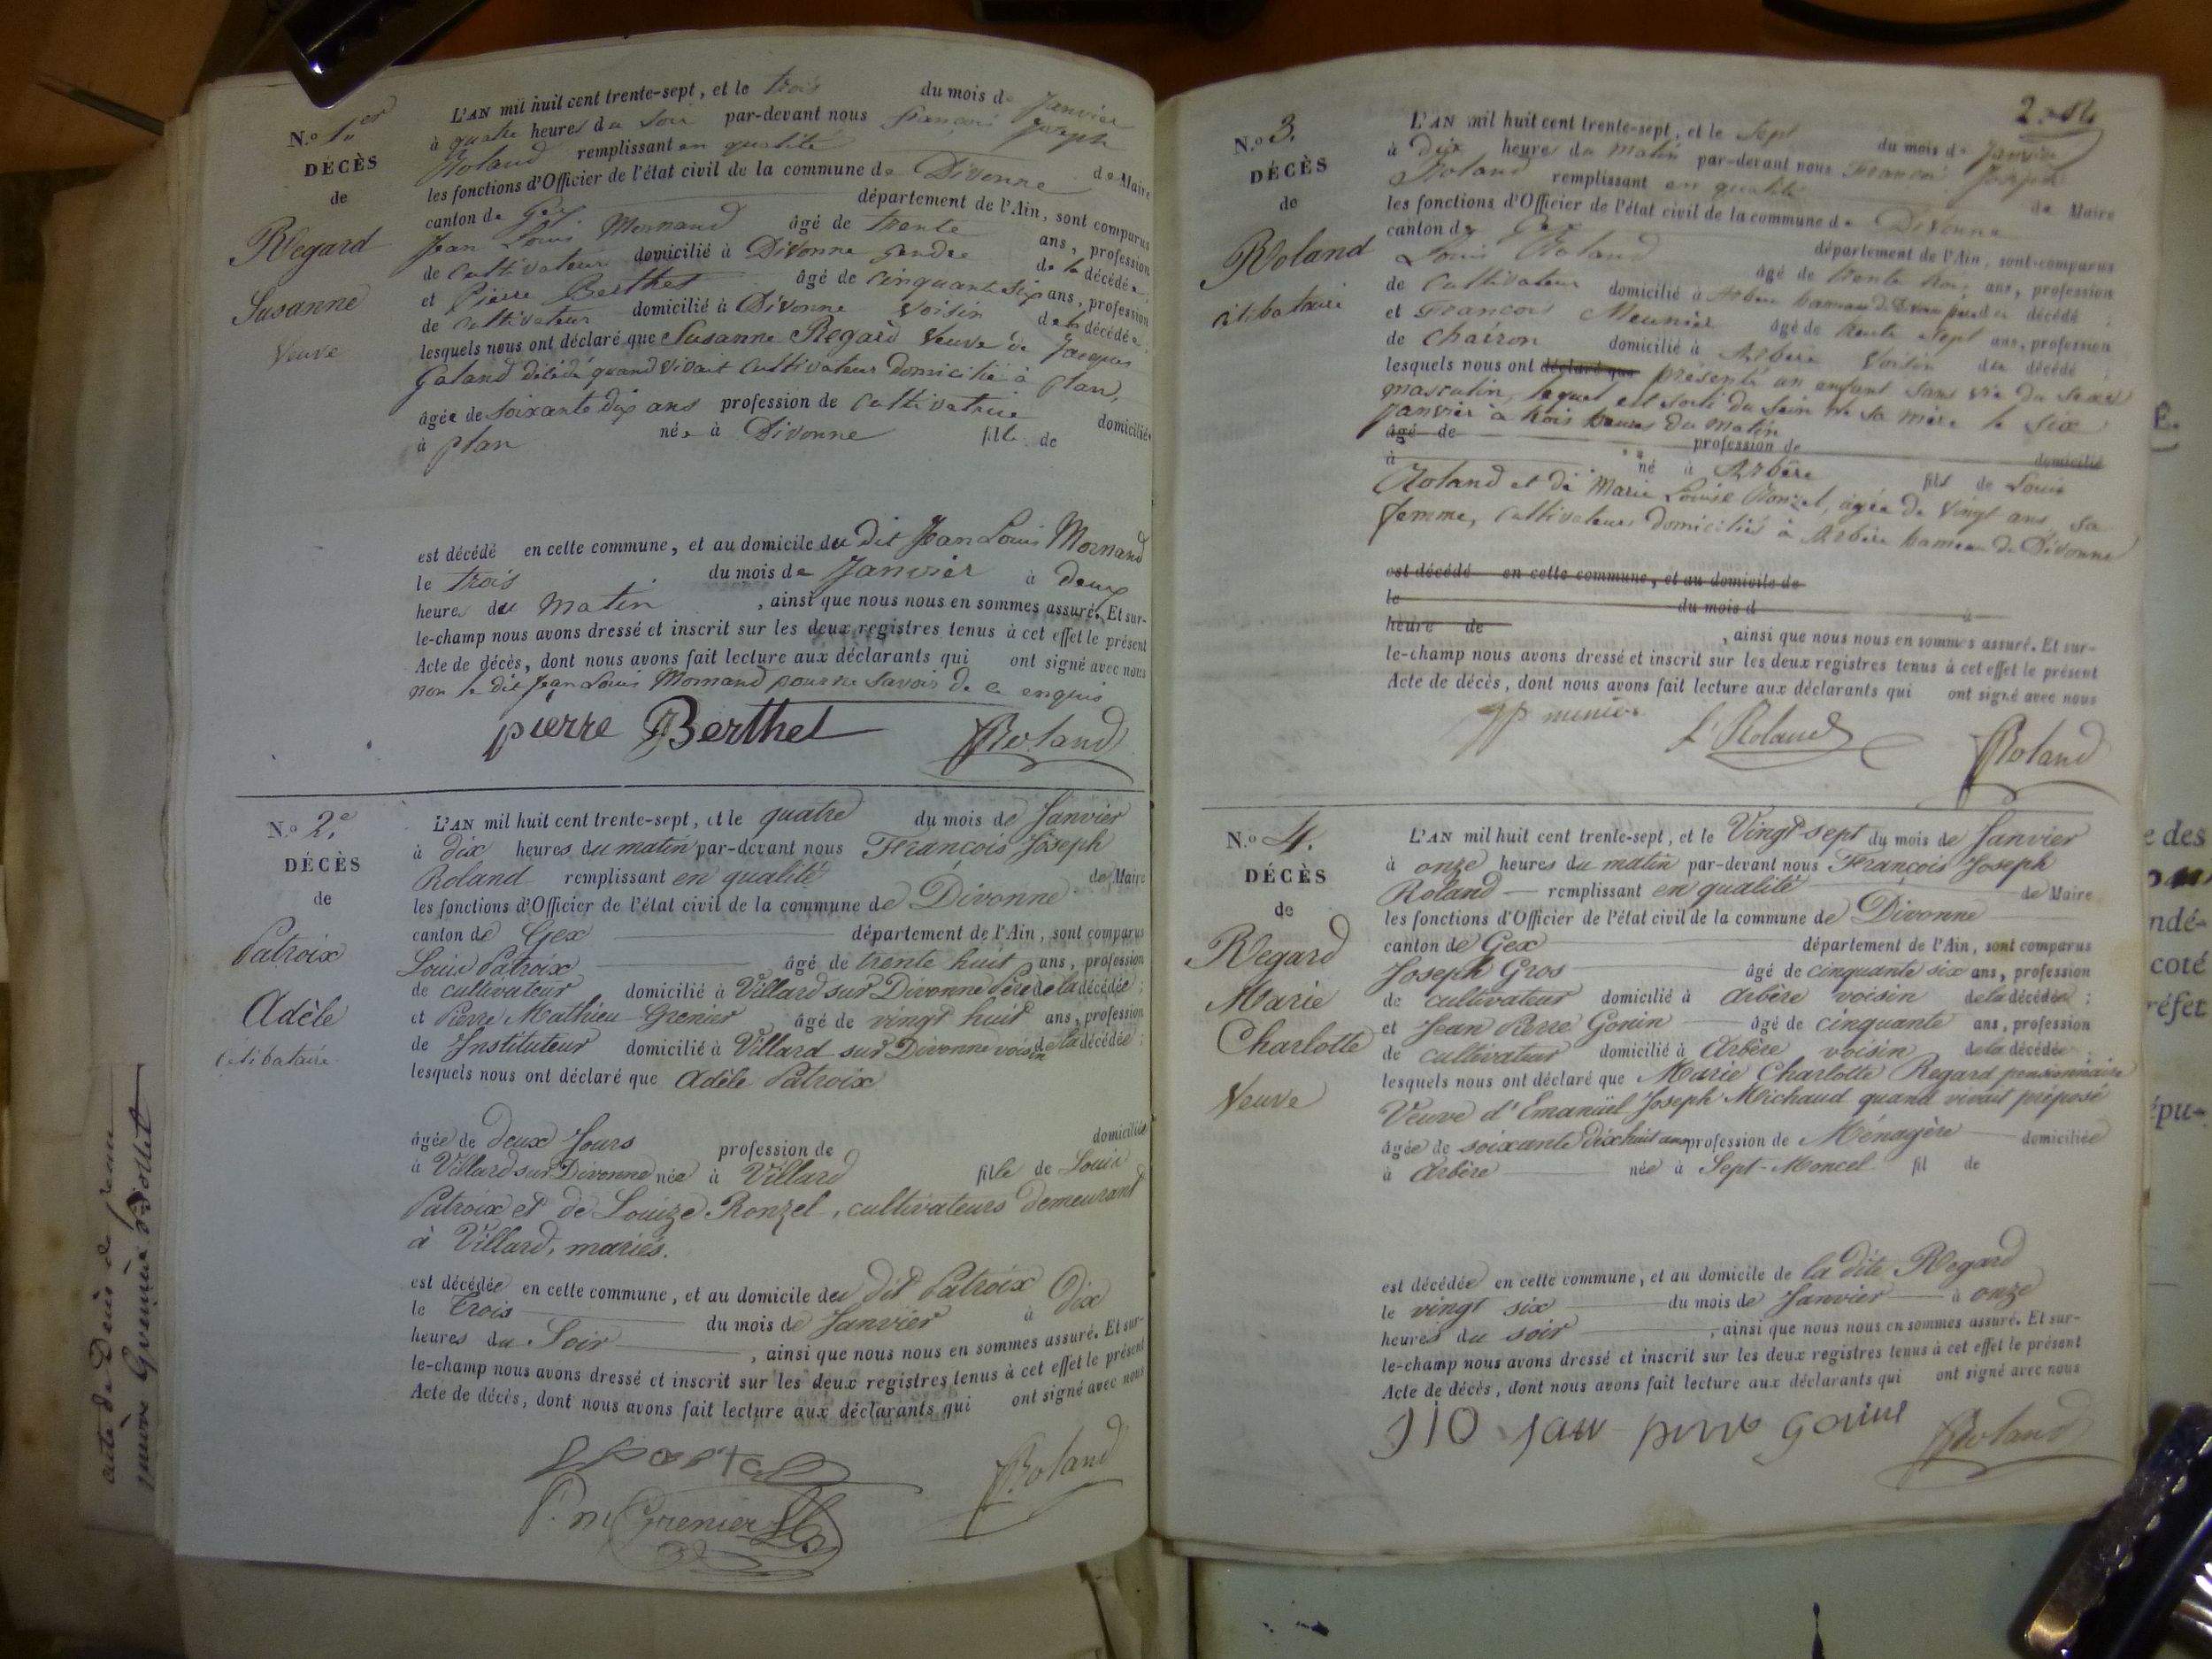 N.o 1.er
DÉCÈS
de
Regard
Susanne
Veuve
L'AN mil huit cent trente-sept, et le trois du mois de Janvier
à quatre heures du soir par-devant nous François Joseph
Roland remplissant en qualité de Maire
les fonctions d'Officier de l'état civil de la commune de Divonne
canton de Gex département de l'Ain, sont comparus
Jean Louis Mornand âgé de trente ans, profession
de cultivateur domicilié à Divonne gendre de la décédée
et Pierre Berthet âgé de cinquante six ans, profession
de cultivateur domicilié à Divonne voisin de la décédée
lesquels nous ont déclaré que Susanne Regard Veuve de Jacques
Galand décédé quand vivait cultivateur domicilié à plan,
âgée de soixante dix ans profession de cultivatrice domiciliée
à plan née à Divonne fille de
est décédé en cette commune, et au domicile du dit Jean Louis Mornand
le trois du mois de Janvier à deux
heures du matin, ainsi que nous nous en sommes assuré. Et sur-
le-champ nous avons dressé et inscrit sur les deux registres tenus à cet effet le présent
Acte de décès, dont nous avons fait lecture aux déclarants qui ont signé avec nous
non le dit Jean Louis Mornand pour ne savoir de ce enquis
pierre Berthet Roland
N.o 2.e
DÉCÈS
de
Patroix
Adèle
Célibataire
L'AN mil huit cent trente-sept, et le quatre du mois de Janvier
à dix heures du matin par-devant nous François Joseph
Roland remplissant en qualité de Maire
les fonctions d'Officier de l'état civil de la commune de Divonne
canton de Gex département de l'Ain, sont comparus
Louis Patroix âgé de trente huit ans, profession
de cultivateur domicilié à Villard sur Divonne Père de la décédée;
et Pierre Mathieu Grenier âgé de vingt huit ans, profession
de Instituteur domicilié à Villard sur Divonne voisin de la décédée;
lesquels nous ont déclaré que Adèle Patroix
âgée de deux Jours profession de domiciliée
à Villard sur Divonne née à Villard fille de Louis
Patroix et de Louize Ronzel, cultivateurs demeurant
à Villard, mariés.
est décédée en cette commune, et au domicile du dit Patroix
le Trois du mois de Janvier à Dix
heures du Soir, ainsi que nous nous en sommes assuré. Et sur-
le-champ nous avons dressé et inscrit sur les deux registres tenus à cet effet le présent
Acte de décès, dont nous avons fait lecture aux déclarants qui ont signé avec nous
Roland
P. m Grenier
acte de Décès de
2
N.o 3.
DÉCÈS
de
Roland
célibataire
L'AN mil huit cent trente-sept, et le sept du mois de Janvier
à dix heures du matin par-devant nous François Joseph
Roland remplissant en qualité de Maire
les fonctions d'Officier de l'état civil de la commune de Divonne
canton de Gex département de l'Ain, sont comparus
Louis Roland âgé de trente trois ans, profession
de Cultivateur domicilié à Arbère hameau de Divonne père du décédé;
et François Meunier âgé de trente sept ans, profession
de chairon domicilié à Arbère Voisin du décédé;
lesquels nous ont déclaré que présenté un enfant sans vie du sexe
masculin, lequel est sorti du sein de sa mère le six
Janvier à trois heures du matin
âgé de profession de domicilié
à né à Arbère fils de Louis
Roland et de Marie Louise Ronzel, âgée de Vingt ans sa
femme, cultivateurs domiciliés à Arbère hameau de Divonne
est décédé en cette commune, et au domicile de
le du mois d à
heure de, ainsi que nous nous en sommes assuré. Et sur-
le-champ nous avons dressé et inscrit sur les deux registres tenus à cet effet le présent
Acte de décès, dont nous avons fait lecture aux déclarants qui ont signé avec nous
L Roland Roland
N.o 4.
DÉCÈS
de
Regard
Marie
Charlotte
Veuve
L'AN mil huit cent trente-sept, et le Vingt-sept du mois de Janvier
à onze heures du matin par-devant nous François Joseph
Roland remplissant en qualité de Maire
les fonctions d'Officier de l'état civil de la commune de Divonne
canton de Gex département de l'Ain, sont comparus
Joseph Gros âgé de cinquante six ans, profession
de cultivateur domicilié à Arbère voisin de la décédée;
et Jean Pierre Gonin âgé de cinquante ans, profession
de cultivateur domicilié à Arbère voisin de la décédée
lesquels nous ont déclaré que Marie Charlotte Regard pensionnaire
Veuve d'Emanüel Joseph Michaud quand vivait préposé
âgée de soixante dix huit ans profession de Ménagère domiciliée
à Arbère née à Sept-Moncel fil de
est décédée en cette commune, et au domicile de la dite Regard
le vingt six du mois de Janvier à onze
heures du soir, ainsi que nous nous en sommes assuré. Et sur-
le-champ nous avons dressé et inscrit sur les deux registres tenus à cet effet le présent
Acte de décès, dont nous avons fait lecture aux déclarants qui ont signé avec nous
Roland
e des
ndé-
coté
réfet
épu-